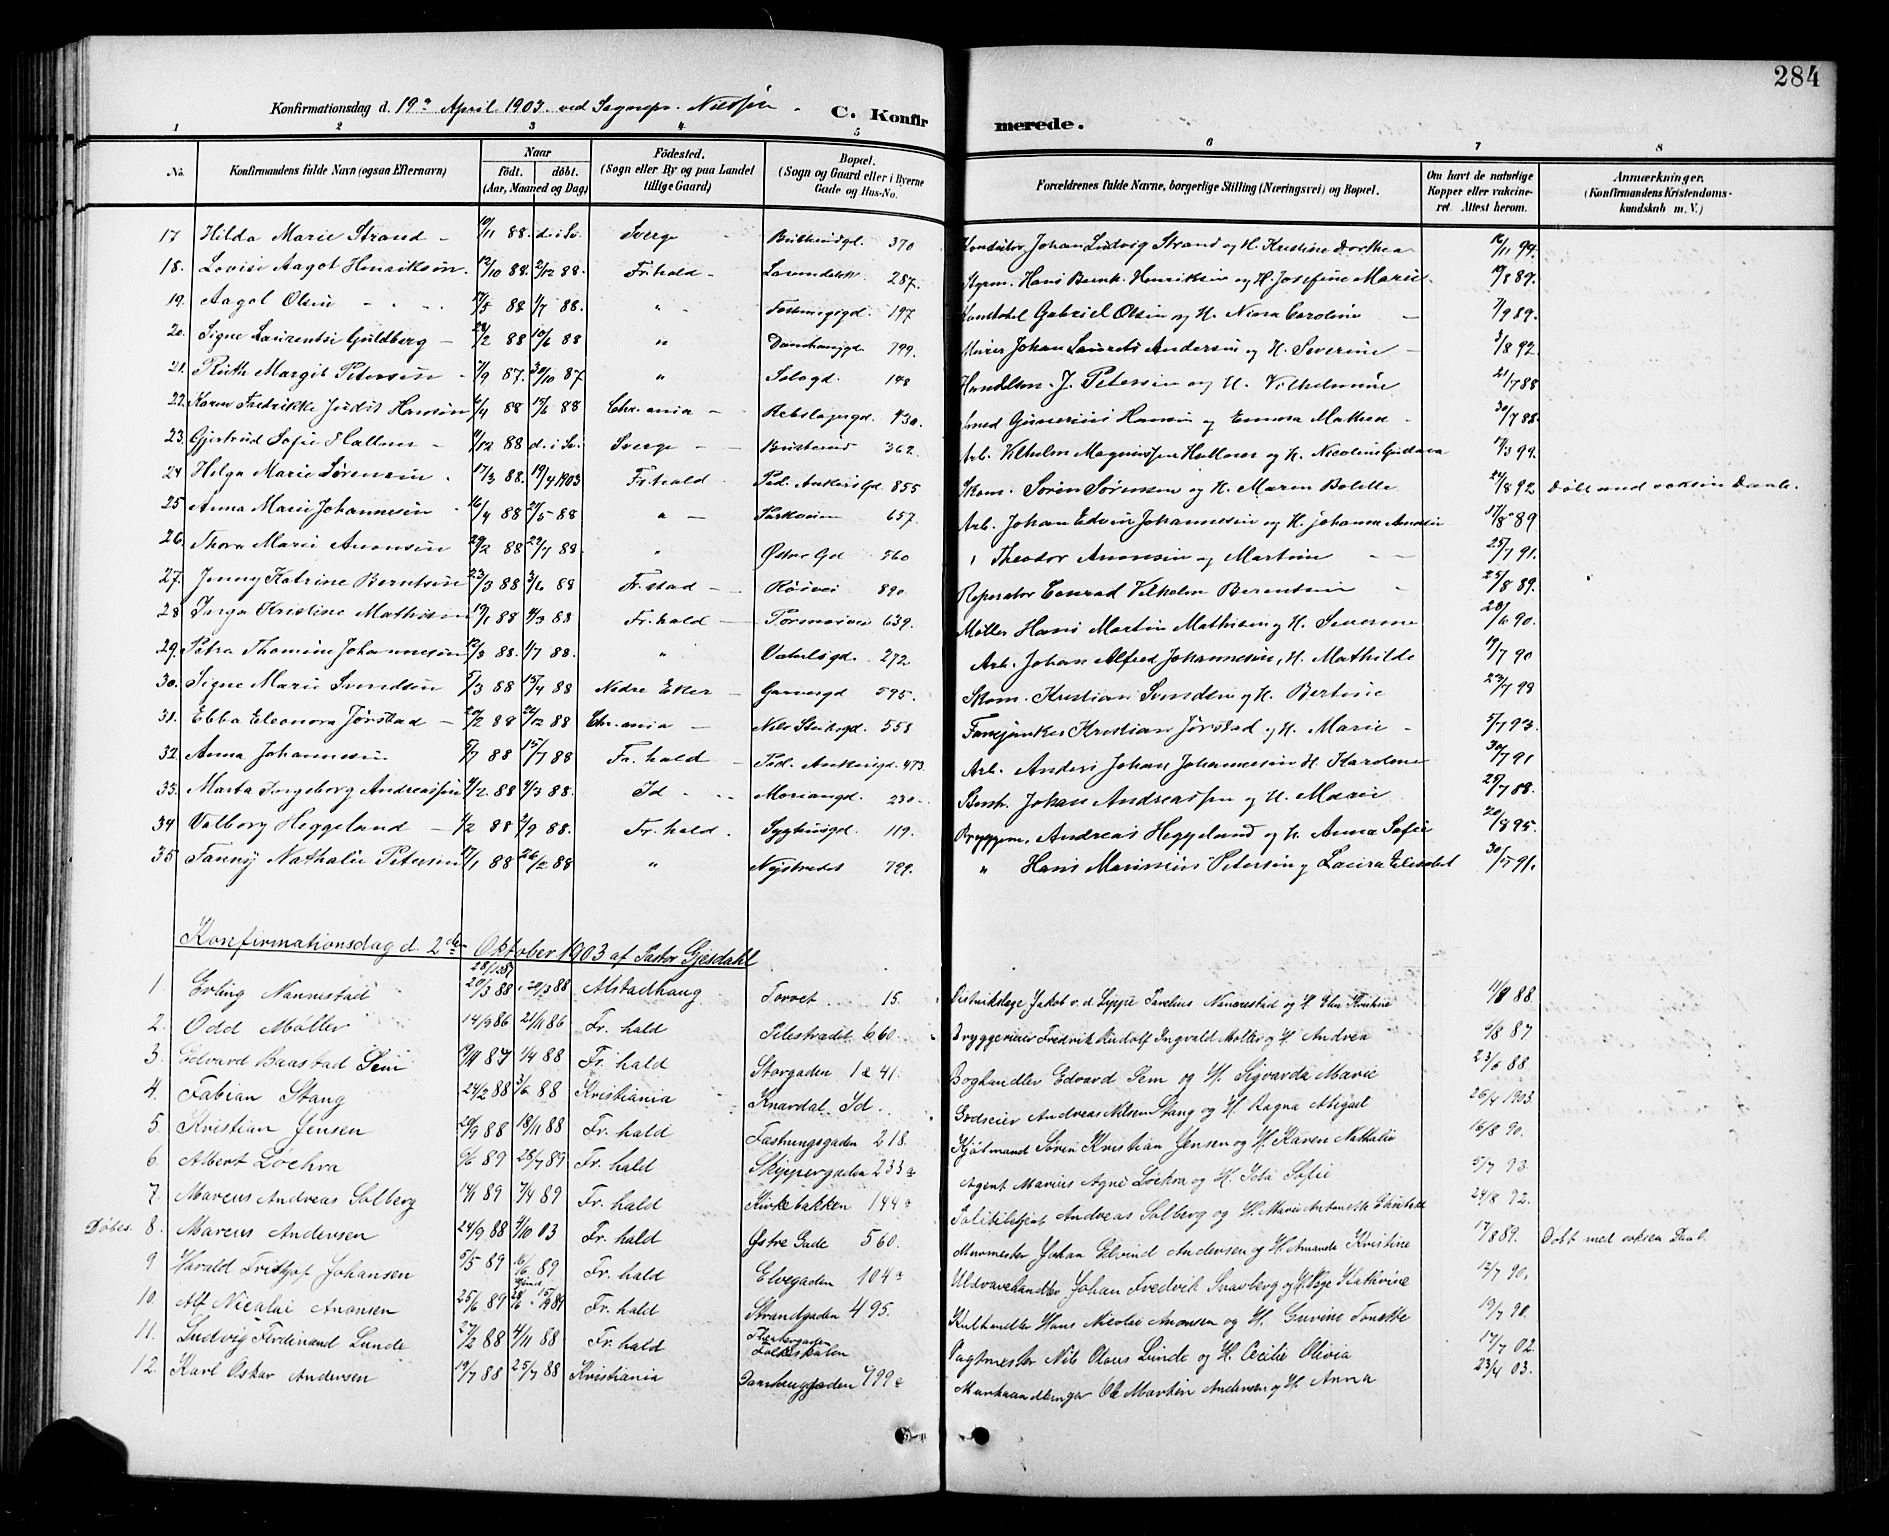 284
Konfirmationsdag d. 19de April 1903 ved Sognepr. Nielsen.
C. Konfirmerede.
1 2 3 4 5 6 7 8
No. Konfirmandens fulde Navn (ogsaa Efternavn) Naar født. døbt. (Aar, Maaned og Dag) Fødested. (Sogn eller By og paa Landet tillige Gaard) Bopæl. (Sogn og Gaard eller i Byerne Gade og Hus-No. Forældrenes fulde Navne, borgerlige Stilling (Næringsvei) og Bopæl. Om havt de naturlige Kopper eller vakcineret. Attest herom. Anmærkninger. (Konfirmandens Kristendomskundskab m. V.)
17 Hilda Marie Strand 10/11 88. d. i Sv. Sverge 370 Konduktør Johan Ludvig Strand og H. Kristine Dorthea 16/11 94.
18. Lovise Aagot Henriksen 12/10 88. 2/12 88. Fr.hald 287. Styrm. Hans Bernh. Henriksen og H. Josefine Marie 19/8 89.
19. Aagot Olsen 17/5 88 1/7 88. " Fæstningsgd. 197 Gabriel Olsen og H. Nina Caroline 7/9 89.
20. Signe Laurentse Guldberg 28/2 88 10/6 88 " Danskeangd. 799. Murer Johan Laurets Andersen og H. Severine 3/8 92.
21. Ruth Margit Petersen 2/9 87. 30/10 87 " Tologd. 148 Handelsm. J. Petersen og H. Vilhelmine 21/7 88
22. Karen Fredrikke Judit Hansen 6/4 88 15/6 88 Chr.ania Rebslagergd. 430. Smed Gunerius Hansen og Emma Mathea 30/7 88.
23. Gjertrud Sofie Hallum 9/12 88 d. i Sv. Sverge 362. Arb. Vilhelm Magnussen Hallum og H. Nicoline Gustava 17/3 99.
24 Helga Marie Sørensen 17/3 88. 19/4 1903 Fr.hald Ped. Ankersgd. 855 Skom. Søren Sørensen og H. Maren Bolette 24/8 92 Døbt med voksen Daab.
25 Anna Marie Johannesen 16/4 88 27/5 88 " Parkveien 657. Arb. Johan Edvin Johannesen og H. Johanne Amalie 17/8 89
26. Thora Marie Anonsen 29/2 88 22/7 88. " Østre Gd 560 " Theodor Anonsen og Martine 25/7 91.
27. Jenny Katrine Berntsen 23/3 88 3/6 88 Fr.stad Røsvei 890. Reperatør Conrad Vilhelm Berentsen 25/8 89.
28 Inga Kristine Mathisen 19/1 88 4/3 88 Fr.hald 639. Møller Hans Martin Mathisen og H. Severine 28/6 90.
29. Petra Thomine Johannesen 12/3 88. 1/7 88. " Vaterlsgd. 272. Arb. Johan Alfred Johannesen, H. Mathilde 19/7 90
30. Signe Marie Svendsen 5/3 88 15/4 88 Nedre Eker Garvergd 595. Skom. Kristian Svendsen og H. Bertine 23/7 98
31. Ebba Eleonora Jørstad 20/2 88 26/12 88 Chr.ania Nils Stubsgd. 558 Fanejunker Kristian Jørstad og H. Marie 5/7 93.
32. Anna Johannesen 5/7 88 15/7 88 Fr.hald Ped. Ankersgd. 473. Arb. Anders Johan Johannesen H. Karoline 30/7 91
33. Marta Ingeborg Andreassen 4/2 88 4/3 88. Id Mariangd. 230. Johan Andreassen og H. Marie 25/7 88.
34 Valborg Heggeland 1/2 88 2/9 88. Fr.hald. Syghusgd. 119. Bryggem. Andreas Heggeland og H. Anna Sofie 20/8 95.
35 Fanny Nathalie Petersen 17/1 88 26/2 88 " Nystredet 729. " Hans Marinius Petersen og Laura Elisabet 30/5 91.
Konfirmationsdag d. 2den Oktober 1903 af Pastor Gjesdahl
1. Erling Nannestad 20/3 88 Alstadhaug Torvet 15. Distriktslæge Jakob v. d. Lippe Parelius Nannestad og H. Kristine 11/8 88
2. Odd Møller 14/9 86 21/11 86 Fr. hald Pilestrædet 660. Bryggerieier Fredrik Rudolf Ingvald Møller og H. Andrea 6/8 87
3. Edvard Baastad Sem 19/11 87 1/4 88 Fr. hald Storgaden 1 a 41. Boghandler Edvard Sem og H. Sigvarda Marie 23/6 88
4. Fabian Stang 24/2 88 3/6 88 Kristiania Knardal Id. Godseier Andreas Nilsen Stang og H. Ragna Abigael 26/4 1903
5. Kristian Jensen 20/9 88 18/11 88 Fr. hald Fæstningsgaden 218. Kjøbmand Søren Kristian Jensen og H. Karen Nathalie 16/8 90.
6 Albert Løchra 6/6 89 28/7 89 Fr. hald Skippergaden 233 a Agent Marius Agne Løchra og H. Ida Sofie 5/7 93.
7. Marcus Andreas Solberg 14/1 89 7/4 89 Fr. hald Kirkebakken 144 a Politibetjent Andreas Solberg og H. Marie Antonette 24/8 92.
Døbes. 8. Marcus Andersen 24/9 88 4/10 03 Fr. hald Østre Gade 560. Murmester Johan Edvind Andersen og H. Amanda Kristine 17/8 89. Døbt med voksen Daab.
9 Harald Frithjof Johansen 5/5 89 16/6 89 Fr. hald Elvegaden 104 a Uldvarehandler Johan Fredrik Snarberg og H. Kathrine 12/7 90.
10. Alf Nicolai Anonsen 25/6 89 Fr. hald Strandgaden 495. Kulhandler Hans Nicolai Anonsen og H. Gurine Tonette 19/7 90.
11. Ludvig Ferdinand Lunde 27/2 88 4/11 88 Fr. hald Folkeskolen Vagtmester Nils Olaus Lunde og H. Cecilie Olivia 17/7 02.
12. Karl Oskar Andersen 19/7 88 25/7 88 Kristiania 799 a Ole Martin Andersen og H. Anna 23/4 03.